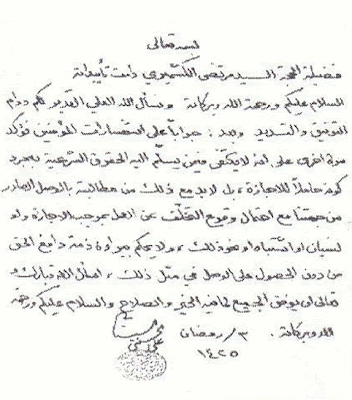 بسمه تعالى
فضيلة الحجة السيد مرتضى الكشميري دامت تأييداته
السلام عليكم ورحمة الله وبركاته ونسأل الله العلي القدير لكم دوام
التوفيق والتسديد وبعد: جواباً على استفسارات المؤمنين نؤكد
مرة اخرى على انه لا يكتفى فيمن يسلّم اليه الحقوق الشرعية بمجرد
كونه حاملاً للاجازة، بل لابد مع ذلك من مطالبته بالوصل الصادر
من جهتنا مع احتمال وقوع التخلّف عن العمل بموجب الاجازة ولو
لنسيان او اشتباه او نحو ذلك، ولا يحكم ببراءة ذمة دافع الحق
من دون الحصول على الوصل في مثل ذلك، اسأل الله تبارك و
تعالى ان يوفق الجميع لما فيه الخير والصلاح والسلام عليكم ورحمة
الله وبركاته. ٣/ رمضان
١٤٢٥